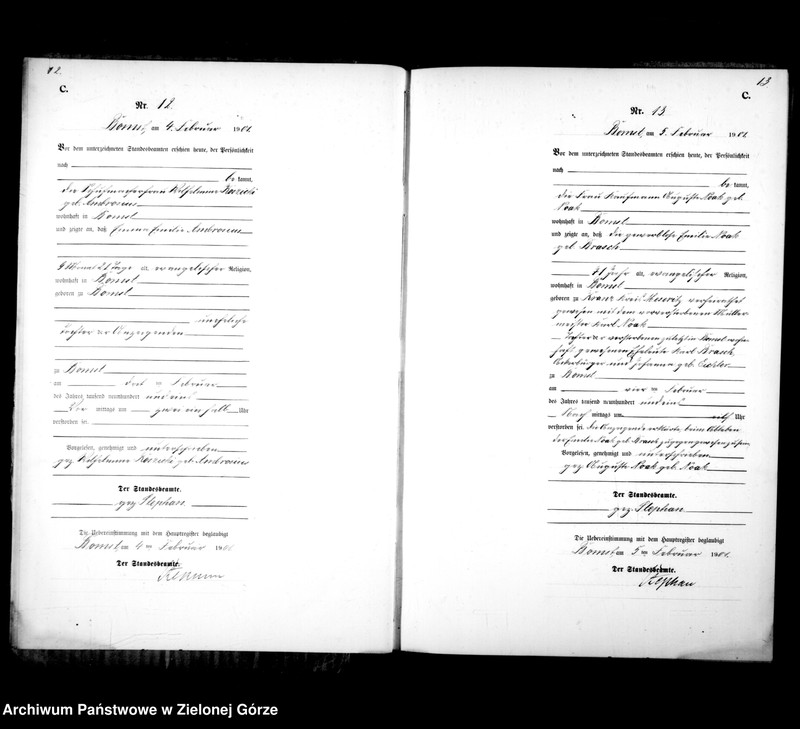 12.
C.
Nr. 12
Komst, am 4. Februar 1901
Vor dem unterzeichneten Standesbeamten erschien heute, der Persönlichkeit
nach
be kannt,
die Schuhmacherfrau Wilhelmine
geb. Ambrosius
wohnhaft in Komst
und zeigte an, daß Emma Emilie Ambrosius
alt, evangelischer Religion,
wohnhaft in Komst
geboren zu Komst
uneheliche
Tochter der Anzeigenden
zu Komst
am drei ten Februar
des Jahres tausend neunhundert und eins
Vor mittags um Uhr
verstorben sei.
Vorgelesen, genehmigt und unterschrieben
gez. Wilhelmine geb. Ambrosius
Der Standesbeamte.
gez. Stephan
Die Uebereinstimmung mit dem Hauptregister beglaubigt
Komst, am 4 ten Februar 1901
Der Standesbeamte.
Stephan
13.
C.
Nr. 13
Komst, am 5. Februar 1901
Vor dem unterzeichneten Standesbeamten erschien heute, der Persönlichkeit
nach
be kannt,
die Frau Kaufmann Auguste Noak geb.
Noak
wohnhaft in Komst
und zeigte an, daß die gewerblose Emilie Noak
geb. Brasch
71 Jahr alt, evangelischer Religion,
wohnhaft in Komst
geboren zu Kranz Kreis Meseritz verheirathet
gewesen mit dem verstorbenen Müller
meister Karl Noak
Tochter der verstorbenen zuletzt in Komst wohn
haft gewesenen Eheleute Karl Brasch,
Ackerbürger und Johanna geb.
zu Komst
am vier ten Februar
des Jahres tausend neunhundert und eins
Nach mittags um acht Uhr
verstorben sei. Die Anzeigende erklärte, beim Ableben
der Emilie Noak geb. Brasch zugegen gewesen zu sein.
Vorgelesen, genehmigt und unterschrieben
gez. Auguste Noak geb. Noak
Der Standesbeamte.
gez. Stephan
Die Uebereinstimmung mit dem Hauptregister beglaubigt
Komst, am 5 ten Februar 1901
Der Standesbeamte.
Stephan
Archiwum Państwowe w Zielonej Górze